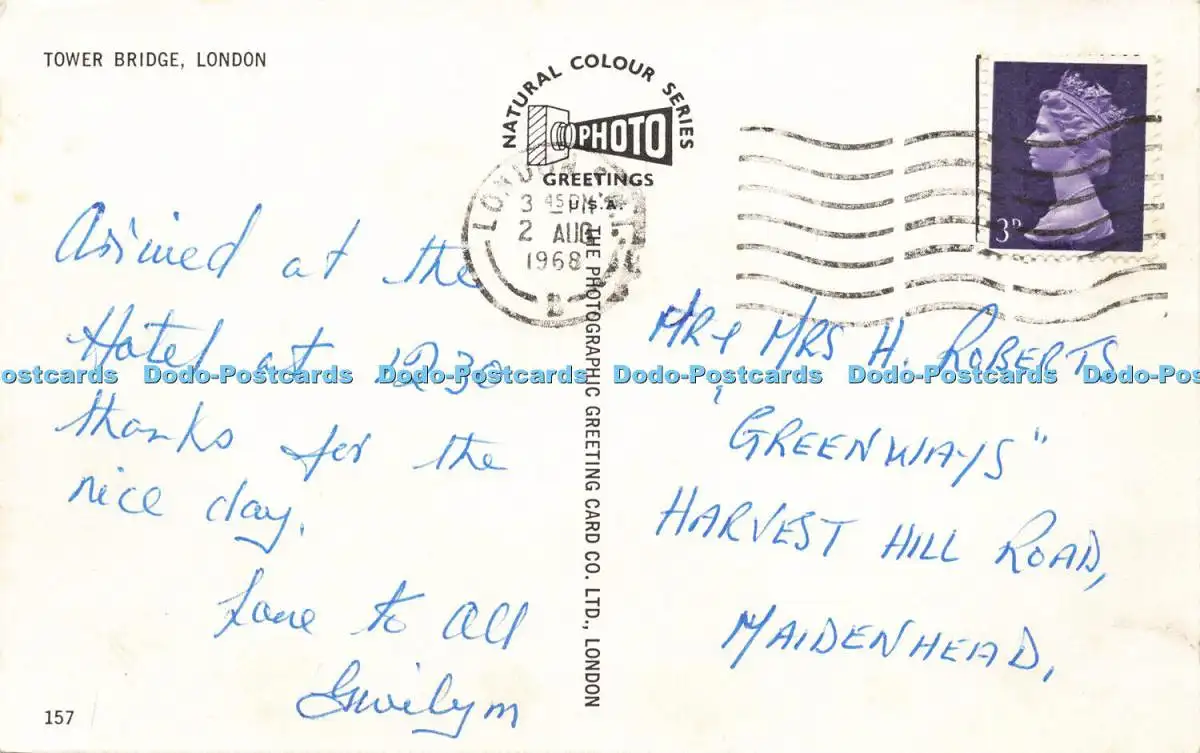 TOWER BRIDGE, LONDON
NATURAL COLOUR SERIES
PHOTO
GREETINGS
U.S.A.
LONDON
3 45 PM
2 AUG
1968
3D
Arrived at the
Hotel at 1230
thanks for the
nice day.
Love to All
Gwilym
THE PHOTOGRAPHIC GREETING CARD CO. LTD., LONDON
MR & MRS H. ROBERTS,
"GREENWAYS"
HARVEST HILL ROAD,
MAIDENHEAD,
157
Dodo-Postcards Dodo-Postcards Dodo-Postcards Dodo-Postcards Dodo-Postcards